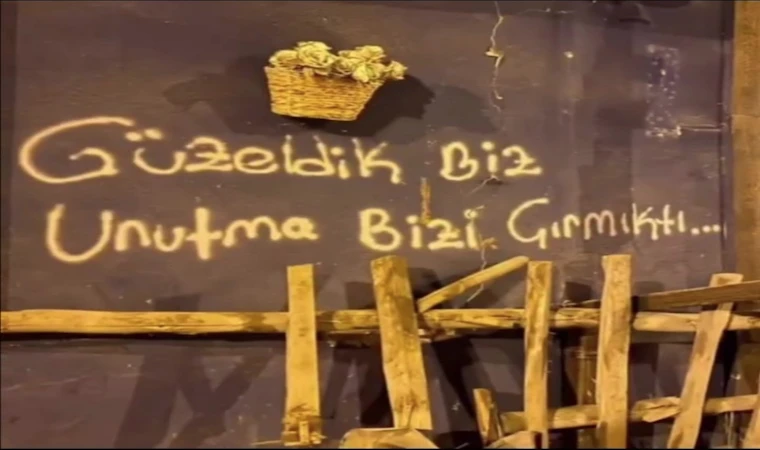 Güzeldik Biz
Unutma Bizi Gırmıktı...